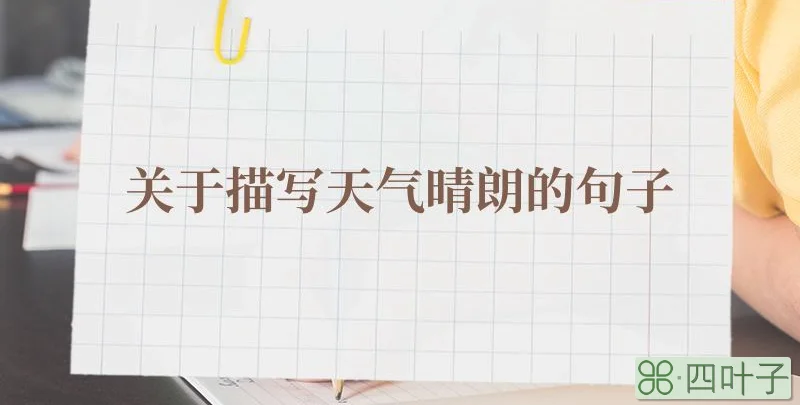 关于描写天气晴朗的句子
四叶子